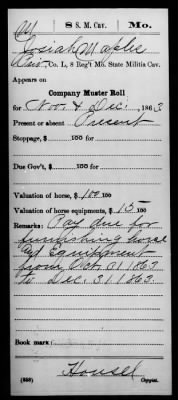 M 8 S. M. Cav. Mo.
Josiah Maples
Pvt., Co. L, 8 Reg't Mo. State Militia Cav.
Appears on
Company Muster Roll
for Nov. & Dec., 1863
Present or absent Present
Stoppage, $ 100 for
Due Gov't, $ 100 for
Valuation of horse, $ 100 100
Valuation of horse equipments, $ 15 100
Remarks: Pay due for
furnishing horse
and equipment
from Oct. 31 1863
to Dec. 31 1863.
Book mark:
Housel
(858) Copyist.